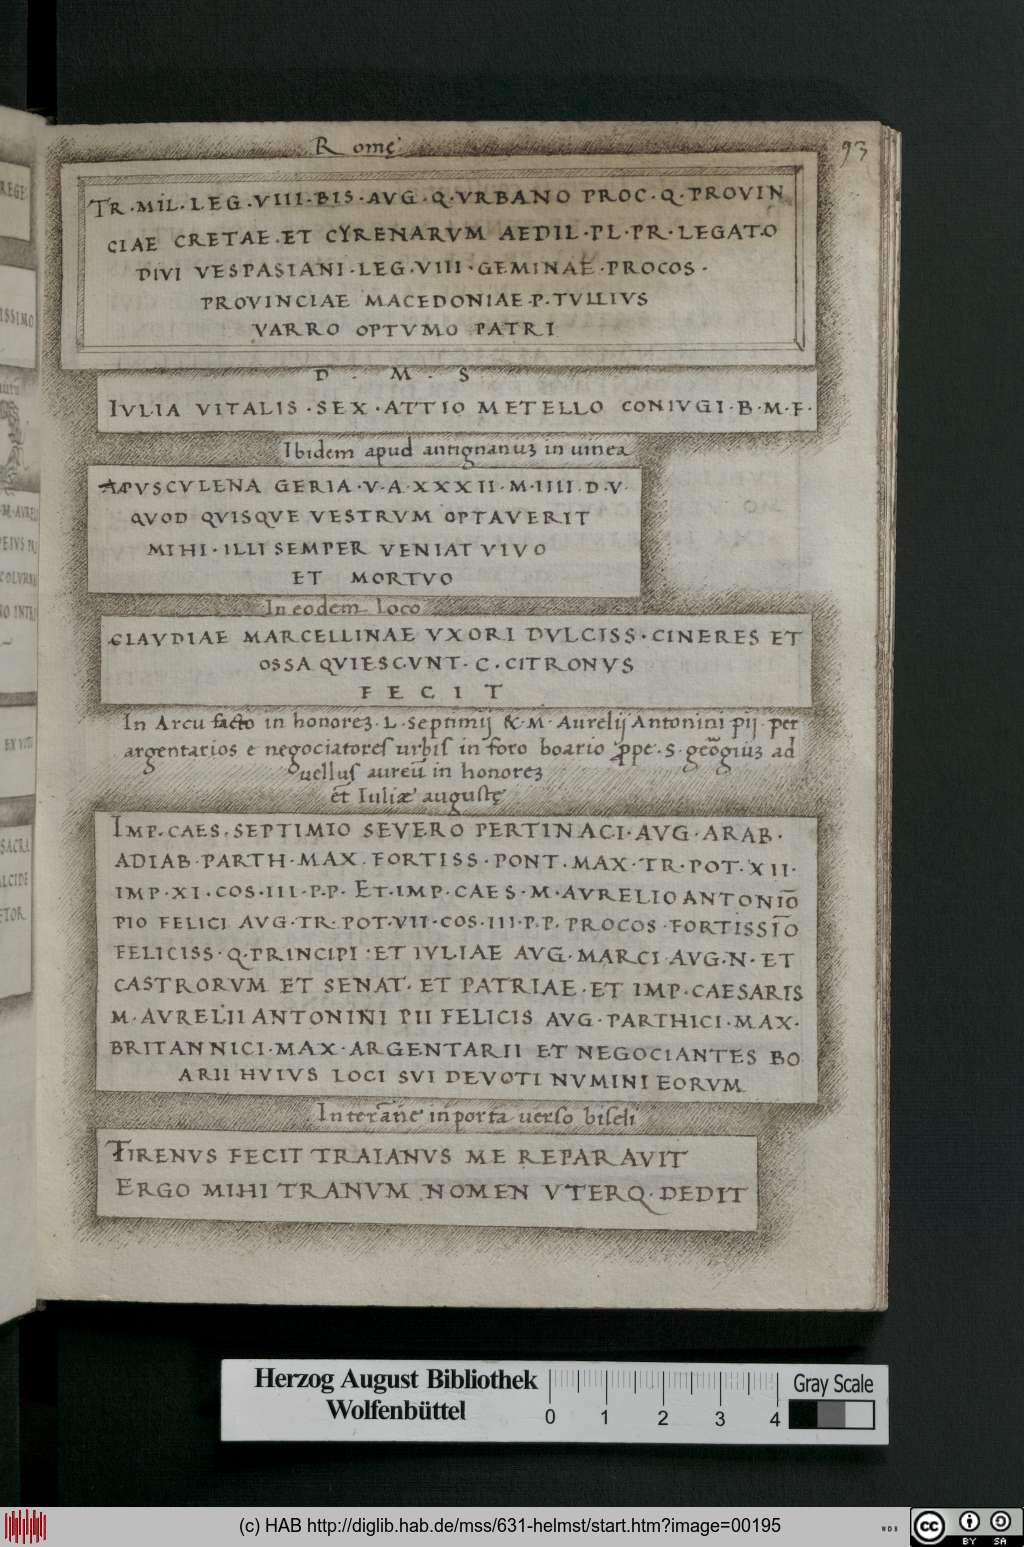 Romę
93
TR·MIL·LEG·VIII·BIS·AVG·Q·VRBANO PROC·Q·PROVIN
CIAE CRETAE·ET CYRENARVM AEDIL·PL·PR·LEGATO
DIVI VESPASIANI·LEG·VIII·GEMINAE·PROCOS·
PROVINCIAE MACEDONIAE·P·TVLLIVS
VARRO OPTVMO PATRI
D · M · S
IVLIA VITALIS·SEX·ATTIO METELLO CONIVGI·B·M·F·
Ibidem apud antignanuȝ in uinea
APVSCVLENA GERIA·V·A·XXXII·M·IIII·D·V·
QVOD QVISQVE VESTRVM OPTAVERIT
MIHI·ILLI SEMPER VENIAT VIVO
ET MORTVO
In eodem loco
CLAVDIAE MARCELLINAE VXORI DVLCISS·CINERES ET
OSSA QVIESCVNT·C·CITRONVS
FECIT
In Arcu facto in honoreȝ·L·Septimij &·M·Aurelij Antonini pij·per
argentarios e negociatores urbis in foro boario ꝓpe·S·geōgiuȝ ad
uellus aureū in honoreȝ
et Iuliæ augustę
IMP·CAES·SEPTIMIO SEVERO PERTINACI·AVG·ARAB·
ADIAB·PARTH·MAX·FORTISS·PONT·MAX·TR·POT·XII·
IMP·XI·COS·III·P·P·ET·IMP·CAES·M·AVRELIO ANTONIŌ
PIO FELICI AVG·TR·POT·VII·COS·III·P·P·PROCOS·FORTISSIŌ
FELICISS·Q·PRINCIPI·ET IVLIAE AVG·MARCI AVG·N·ET
CASTRORVM ET SENAT·ET PATRIAE·ET IMP·CAESARIS
M·AVRELII ANTONINI PII FELICIS AVG·PARTHICI·MAX·
BRITANNICI·MAX·ARGENTARII ET NEGOCIANTES BO
ARII HVIVS LOCI SVI DEVOTI NVMINI EORVM
Interāne in porta uerso biseli
TIRENVS FECIT TRAIANVS ME REPARAVIT
ERGO MIHI TRANVM NOMEN VTERQ·DEDIT
Herzog August Bibliothek
Wolfenbüttel
0 1 2 3 4
Gray Scale
(c) HAB http://diglib.hab.de/mss/631-helmst/start.htm?image=00195
WDB
cc BY SA